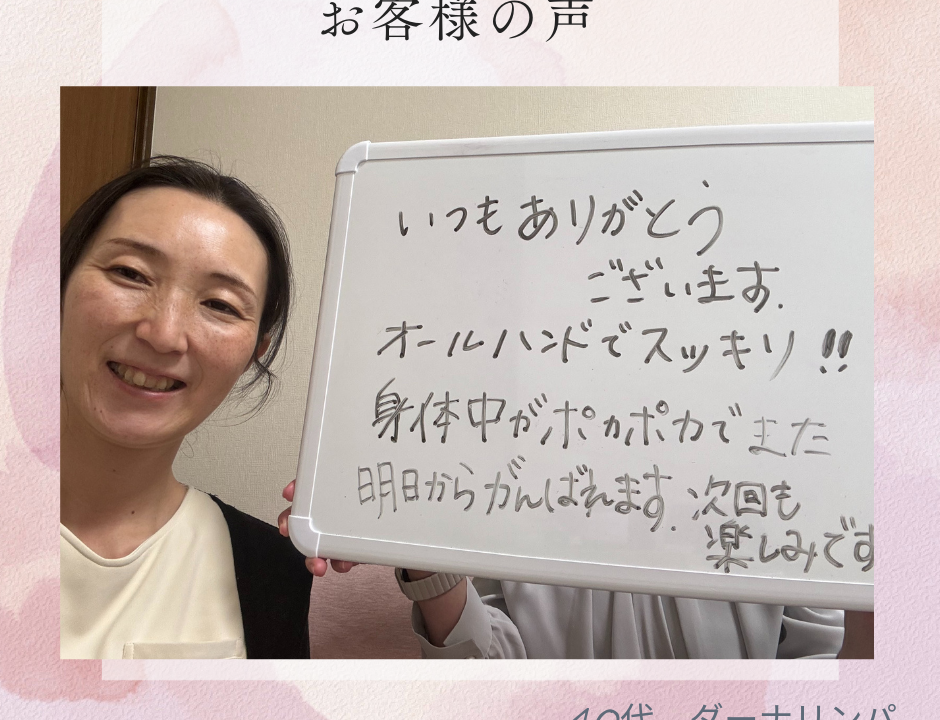 お客様の声
いつもありがとう
ございます.
オールハンドでスッキリ!!
身体中がポカポカでまた
明日からがんばれます.次回も
楽しみです
40代 ダーナリンパ